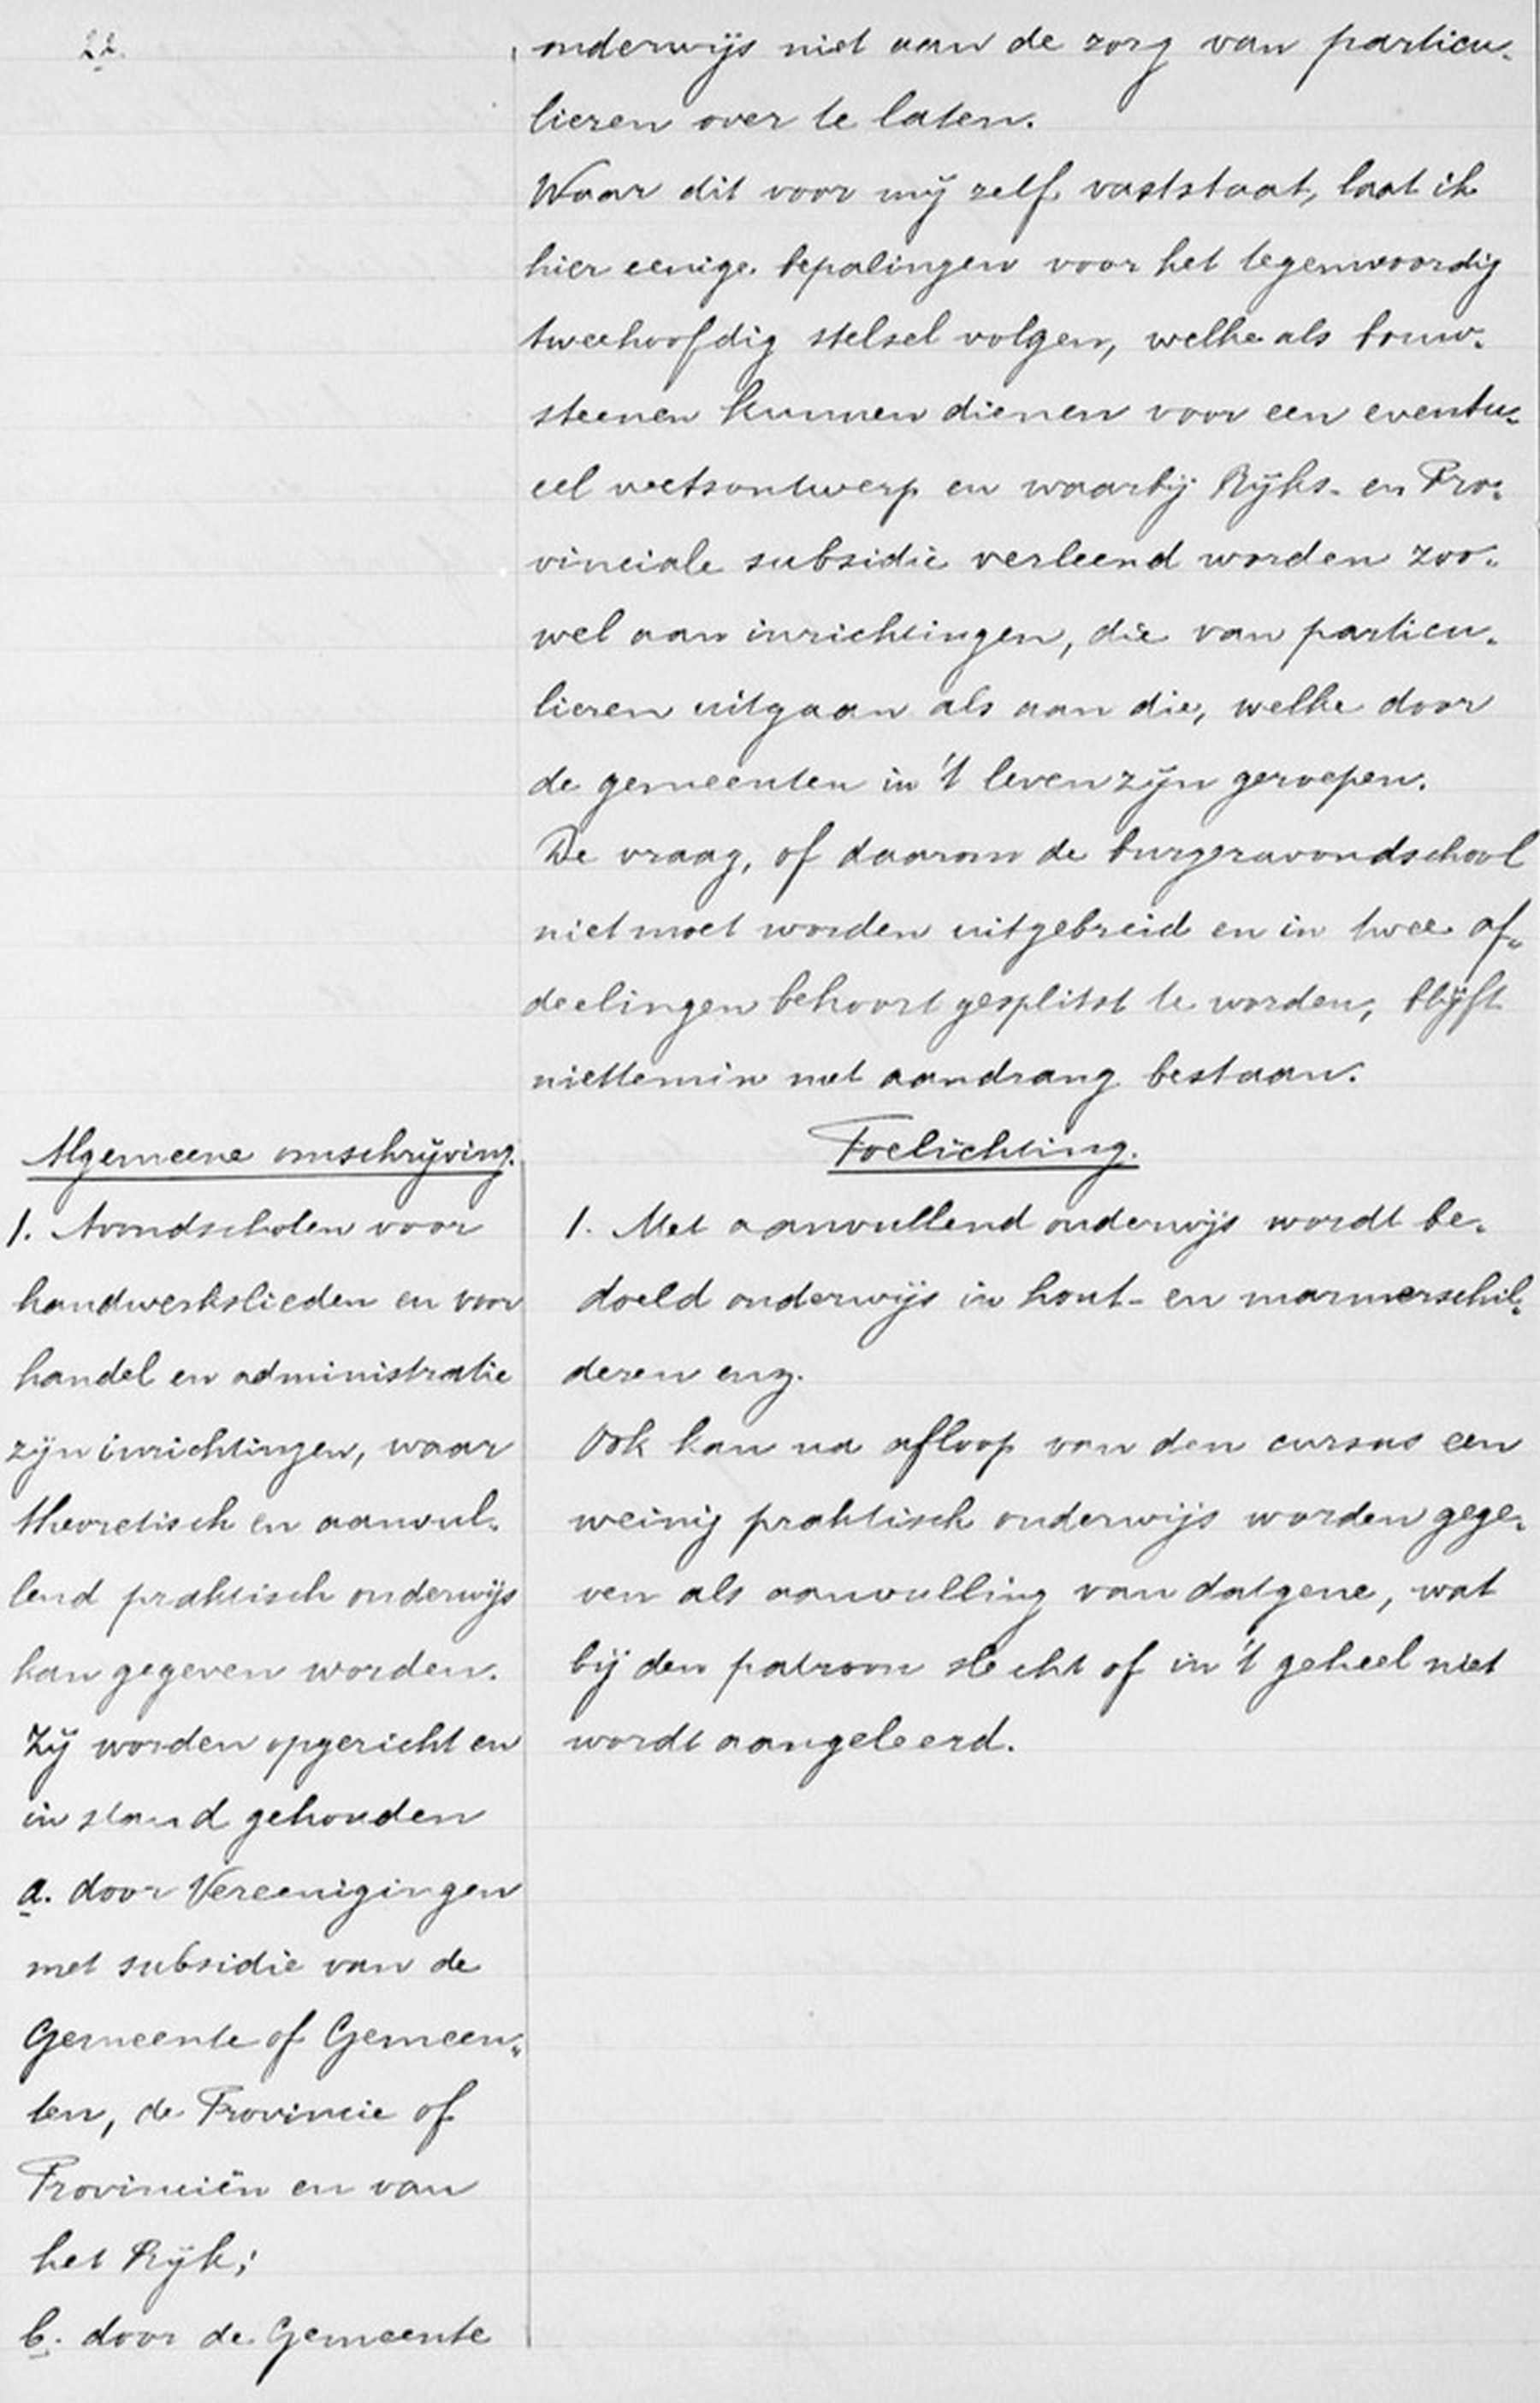 22.
onderwijs niet aan de zorg van particu-
lieren over te laten.
Waar dit voor mij zelf vaststaat, laat ik
hier eenige bepalingen voor het tegenwoordig
tweehoofdig stelsel volgen, welke als bouw-
steenen kunnen dienen voor een eventu-
eel wetsontwerp en waarbij Rijks- en Pro-
vinciale subsidie verleend worden zoo-
wel aan inrichtingen, die van particu-
lieren uitgaan als aan die, welke door
de gemeenten in 't leven zijn geroepen.
De vraag, of daarom de burgeravondschool
niet moet worden uitgebreid en in twee af-
deelingen behoort gesplitst te worden, blijft
niettemin met aandrang bestaan.
Algemeene omschrijving.
1. Avondscholen voor
handwerkslieden en voor
handel en administratie
zijn inrichtingen, waar
theoretisch en aanvul-
lend praktisch onderwijs
kan gegeven worden.
Zij worden opgericht en
in stand gehouden
a. door Vereenigingen
met subsidie van de
Gemeente of Gemeen-
ten, de Provincie of
Provinciën en van
het Rijk;
b. door de Gemeente
Toelichting.
1. Met aanvullend onderwijs wordt be-
doeld onderwijs in hout- en marmerschil-
deren enz.
Ook kan na afloop van den cursus een
weinig praktisch onderwijs worden gege-
ven als aanvulling van datgene, wat
bij den patroon slecht of in 't geheel niet
wordt aangeleerd.